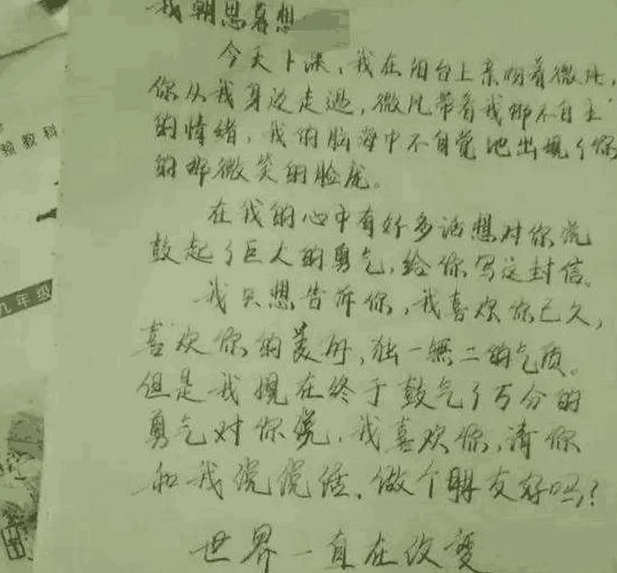 我朝思暮想
今天下课，我在阳台上亲吻着微风，
你从我身边走过，微风带着我那不自主
的情绪，我的脑海中不自觉地出现了你
的那微笑的脸庞。
在我的心中有好多话想对你说
鼓起了巨人的勇气，给你写这封信。
我只想告诉你，我喜欢你已久，
喜欢你的美丽，独一無二的气质。
但是我现在终于鼓气了万分的
勇气对你说，我喜欢你，请你
和我说说话，做个朋友好吗？
世界一直在改变
验教科
九年级